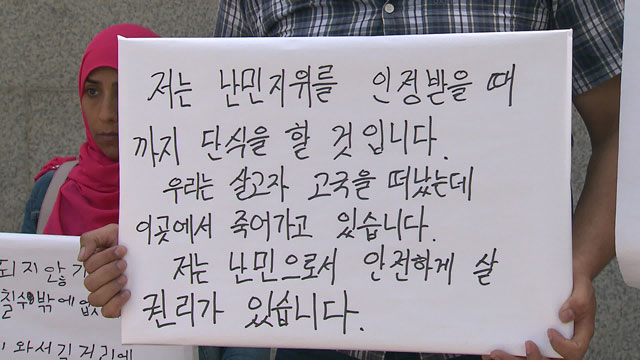 저는 난민지위를 인정받을 때
까지 단식을 할 것입니다.
우리는 살고자 고국을 떠났는데
이곳에서 죽어가고 있습니다.
저는 난민으로서 안전하게 살
권리가 있습니다.
되지 않
밖에
와서 길거리에